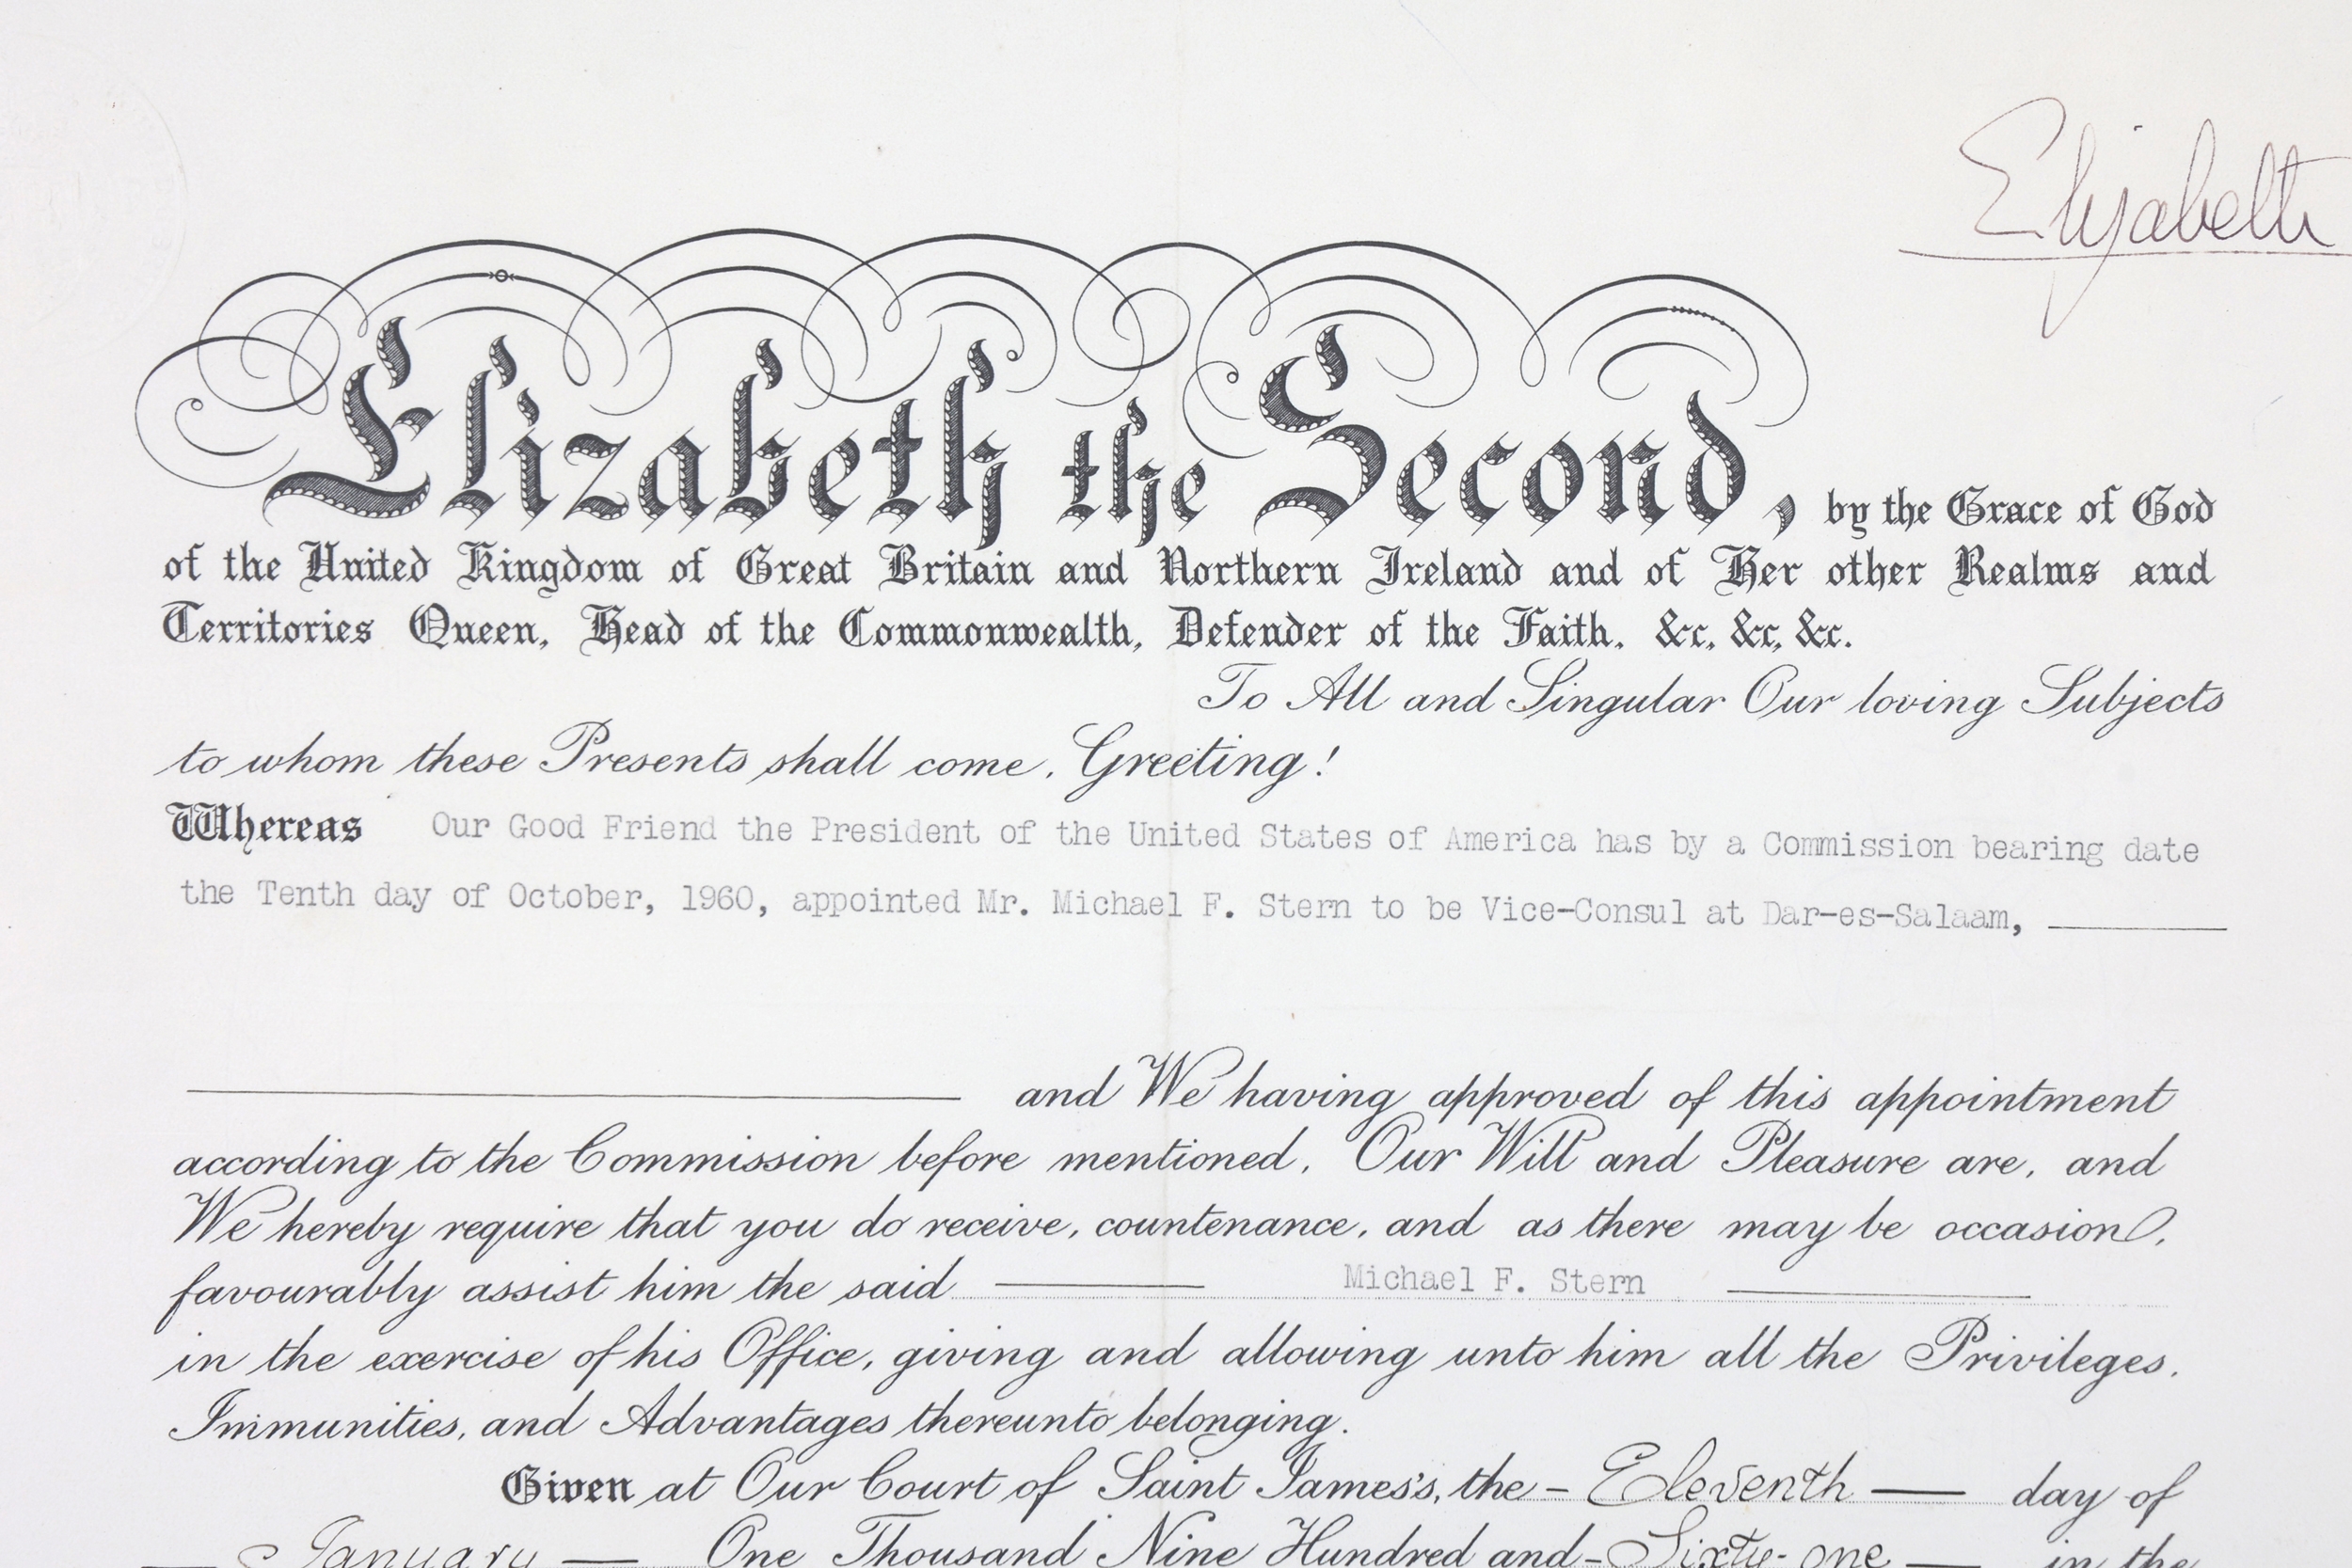 Elizabeth
Elizabeth the Second, by the Grace of God
of the United Kingdom of Great Britain and Northern Ireland and of Her other Realms and
Territories Queen, Head of the Commonwealth, Defender of the Faith, &c, &c, &c.
To All and Singular Our loving Subjects
to whom these Presents shall come, Greeting!
Whereas Our Good Friend the President of the United States of America has by a Commission bearing date
the Tenth day of October, 1960, appointed Mr. Michael F. Stern to be Vice-Consul at Dar-es-Salaam,
and We having approved of this appointment
according to the Commission before mentioned, Our Will and Pleasure are, and
We hereby require that you do receive, countenance, and as there may be occasion,
favourably assist him the said Michael F. Stern
in the exercise of his Office, giving and allowing unto him all the Privileges,
Immunities, and Advantages thereunto belonging.
Given at Our Court of Saint James's, the - Eleventh — day of
— January — One Thousand Nine Hundred and - Sixty-one — in the